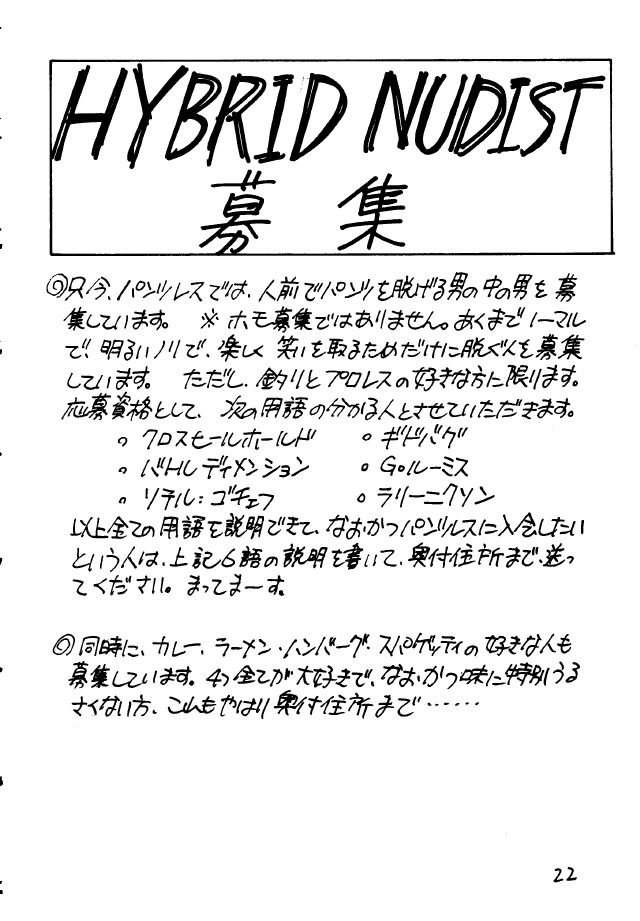 HYBRID NUDIST
募集
◎只今、パンツレスでは、人前でパンツを脱げる男の中の男を募
集しています。 ※ホモ募集ではありません。あくまでノーマル
で、明るいノリで、楽しく笑いを取るためだけに脱ぐ人を募集
しています。 ただし、釣りとプロレスの好きな方に限ります。
応募資格として、次の用語の分かる人とさせていただきます。
。クロスセールホールド 。ギドバグ
。バトルディメンション 。Goルーミス
。ソテル:ゴチェフ 。ラリーニクソン
以上全ての用語を説明できて、なおかつパンツレスに入会したい
という人は、上記6語の説明を書いて、奥付住所まで、送っ
てください。まってまーす。
◎同時に、カレー、ラーメン・ハンバーグ・スパゲッティの好きな人も
募集しています。4つ全てが大好きで、なおかつ味に特別うる
さくない方、こんもやはり奥付住所まで……
22